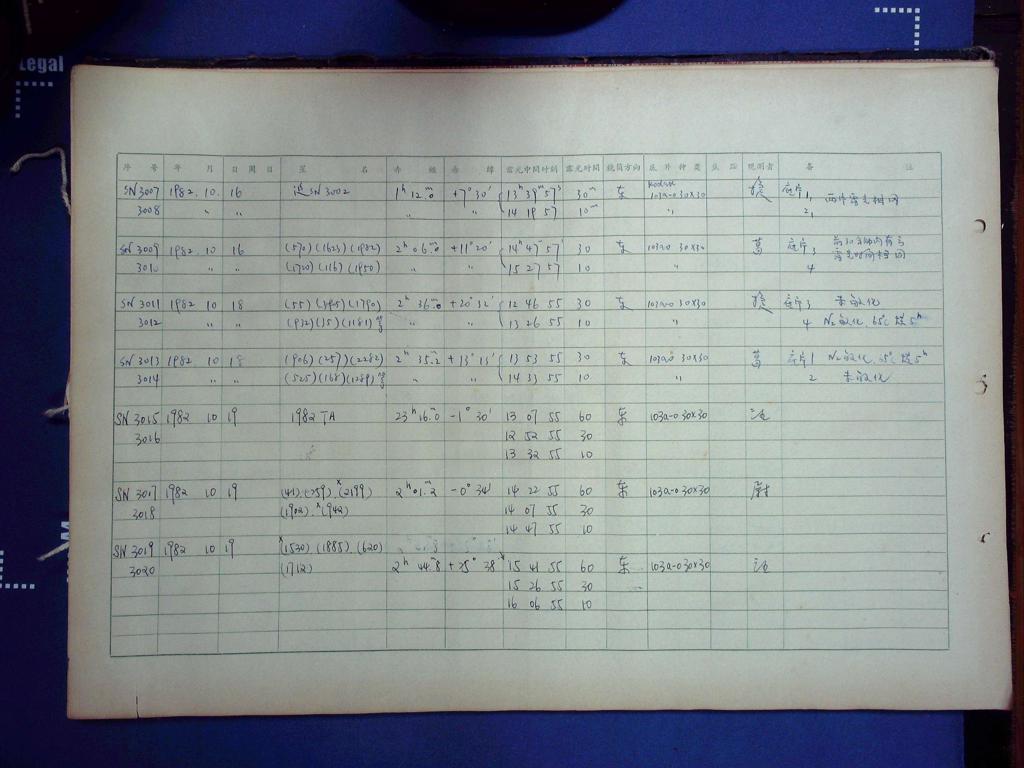 Legal
序 号 年 月 日 周 日 星 名 赤 经 赤 纬 露光中间时刻 露光时间 镜筒方向 底片种类 观测者 备 注
SN 3007 1982. 10. 16 SN 3002 1ʰ 12ᵐ.0 +7° 30′ 13ʰ 39ᵐ 57ˢ 30ᵐ 东 Kodak 103a-0 30×30 底片1, 两片露光相同
3008 〃 〃 〃 〃 14 19 57 10ᵐ 〃 2,
SN 3009 1982. 10 16 (570) (1623) (1982) 2ʰ 06ᵐ.0 +11° 20′ 14ʰ 47 57 30 东 103a-0 30×30 葛 底片3
3010 〃 〃 (1720) (116) (1950) 〃 〃 15 27 57 10 〃 4 露光时间相同
SN 3011 1982 10 18 (55) (1790) 2ʰ 36ᵐ.0 +20° 32′ 12 46 55 30 东 103a-0 30×30 底片3 未敏化
3012 〃 〃 (932) (35) (1181) 等 13 26 55 10 〃 4 N₂敏化, 65℃ 烘5ʰ
SN 3013 1982 10 18 (906) (257) (2282) 2ʰ 35ᵐ.2 +13° 13′ 13 53 55 30 东 103a0 30×30 葛 底片1 N₂敏化, 65℃ 烘5ʰ
3014 〃 〃 (525) (168) (1289) 等 〃 〃 14 33 55 10 〃 2 未敏化
SN 3015 1982 10 19 1982 TA 23ʰ 16ᵐ.0 -1° 30′ 13 07 55 60 东 103a-0 30×30
3016 12 52 55 30
13 32 55 10
SN 3017 1982 10 19 (41) (759) ˣ(2199) 2ʰ 01ᵐ.2 -0° 34′ 14 22 55 60 东 103a-0 30×30 尉
3018 (1902) ˣ(942) 14 07 55 30
14 47 55 10
SN 3019 1982 10 19 ˣ(1530) (1885) (620)
3020 (1712) 2ʰ 44ᵐ.8 +25° 38′ 15 41 55 60 东 103a-0 30×30
15 26 55 30
16 06 55 10